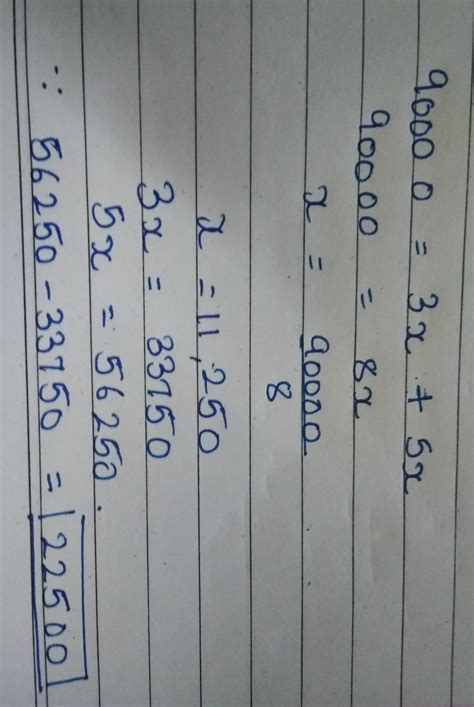 90000 = 3x + 5x
90000 = 8x
x = 90000
8
x = 11,250
3x = 33750
5x = 56250.
∵ 56250 - 33750 = 22500